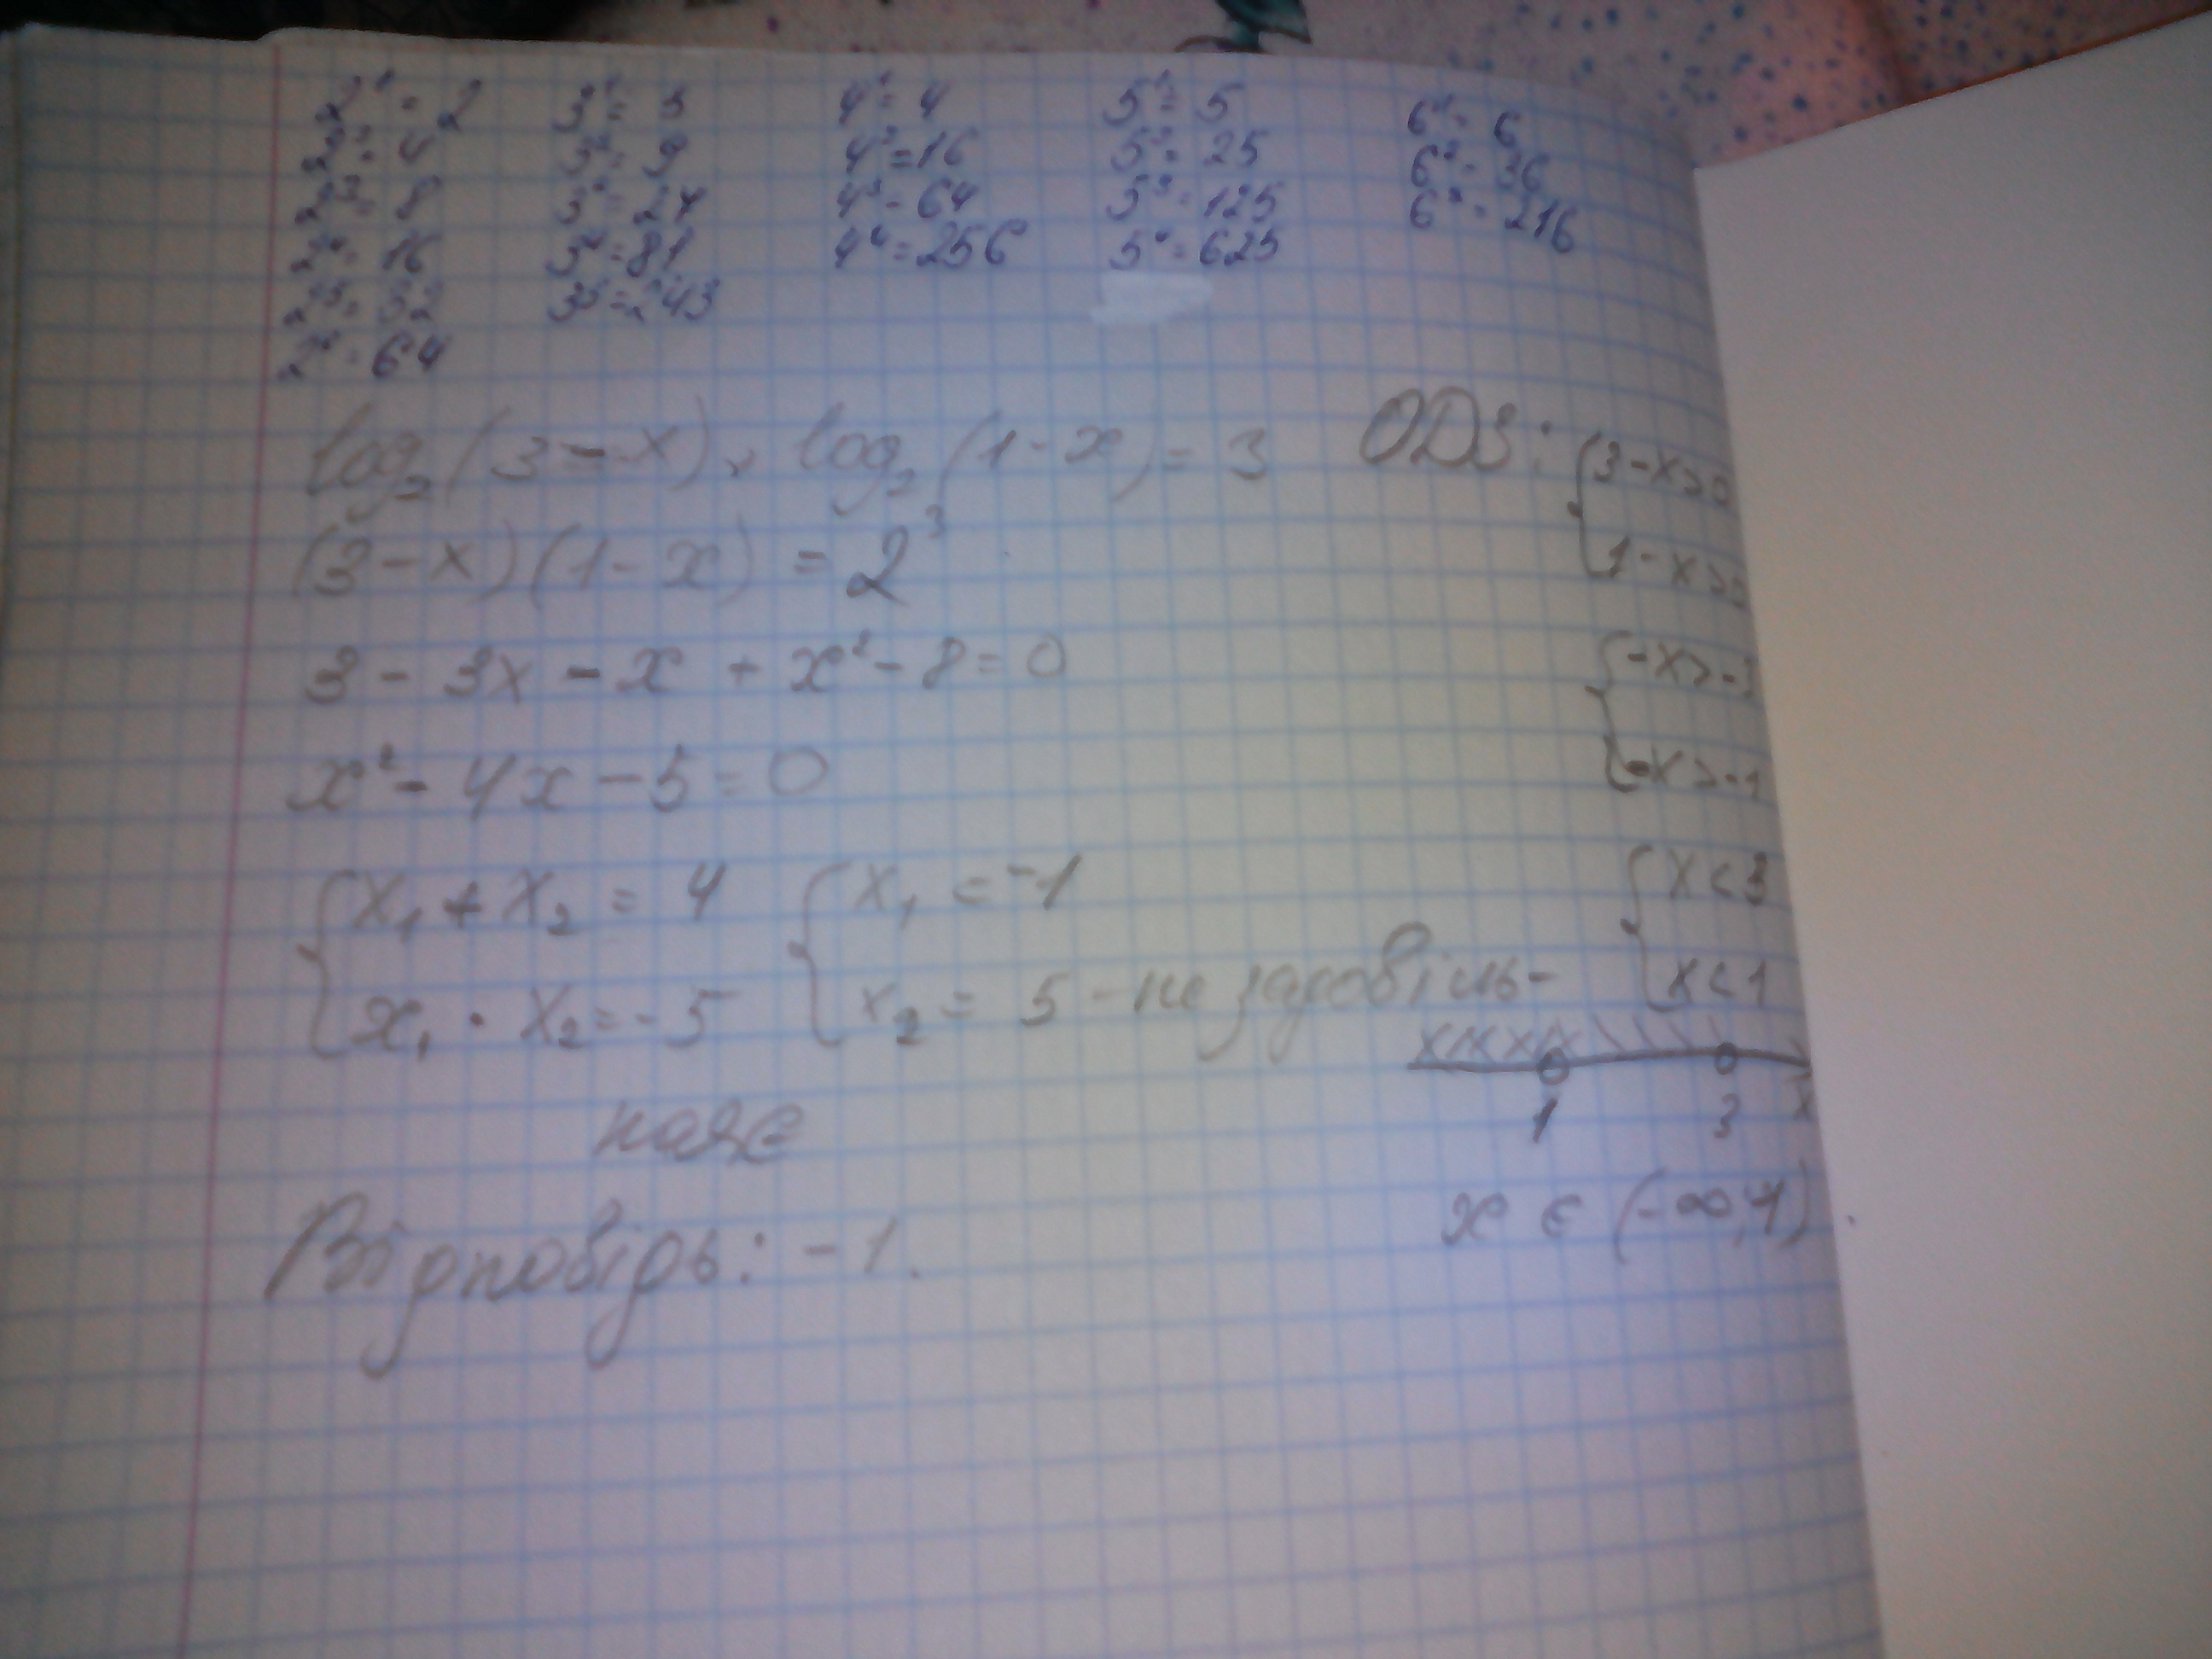 2¹ = 2 3¹ = 3 4¹ = 4 5¹ = 5 6¹ = 6
2² = 4 3² = 9 4² = 16 5² = 25 6² = 36
2³ = 8 3³ = 27 4³ = 64 5³ = 125 6³ = 216
2⁴ = 16 3⁴ = 81 4⁴ = 256 5⁴ = 625
2⁵ = 32 3⁵ = 243
2⁶ = 64
log₂(3 - x) + log₂(1 - x) = 3 ОДЗ: { 3 - x > 0
(3 - x)(1 - x) = 2³ 1 - x > 0
3 - 3x - x + x² - 8 = 0 { -x > -3
x² - 4x - 5 = 0 -x > -1
{ x₁ + x₂ = 4 { x₁ = -1 { x < 3
x₁ · x₂ = -5 x₂ = 5 - не задовіль- x < 1
няє 1 3 x
Відповідь: -1. x ∈ (-∞; 1).